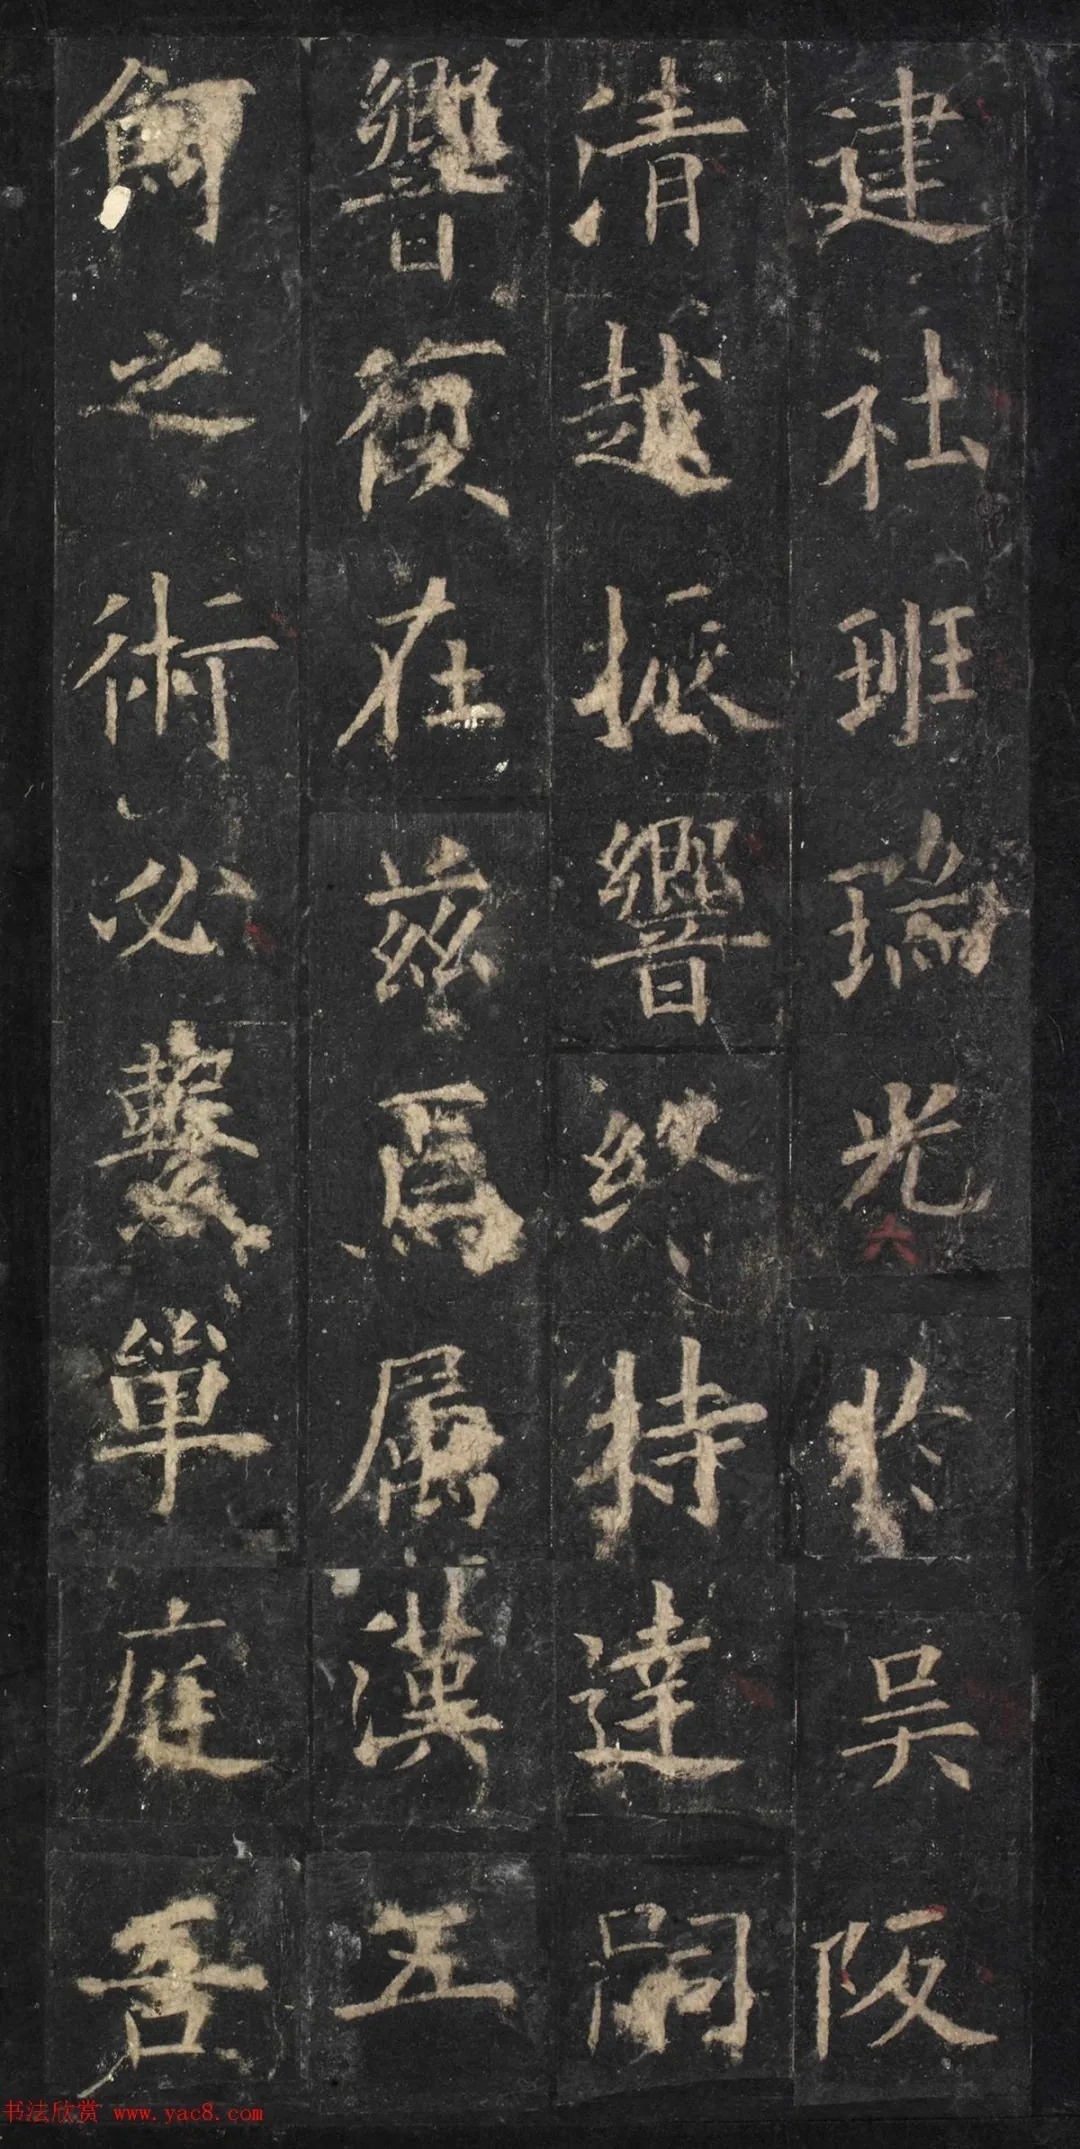 建社班瑞光於吴阪
清越振響終特達嗣
響復在茲爲属漢五
飼之術必蠶單庭吾
六
书法欣赏 www.yac8.com